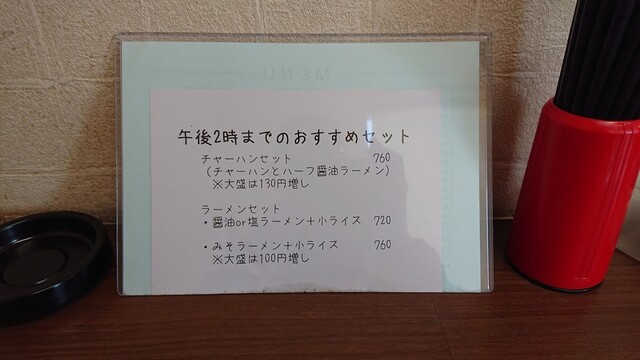 MENU
午後2時までのおすすめセット
チャーハンセット 760
（チャーハンとハーフ醤油ラーメン）
※大盛は130円増し
ラーメンセット
・醤油or塩ラーメン＋小ライス 720
・みそラーメン＋小ライス 760
※大盛は100円増し